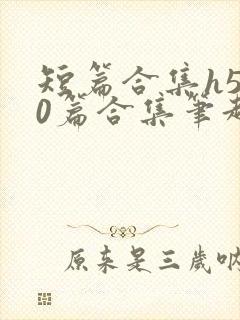 短篇合集h5
0篇合集笔
原来是三岁吶